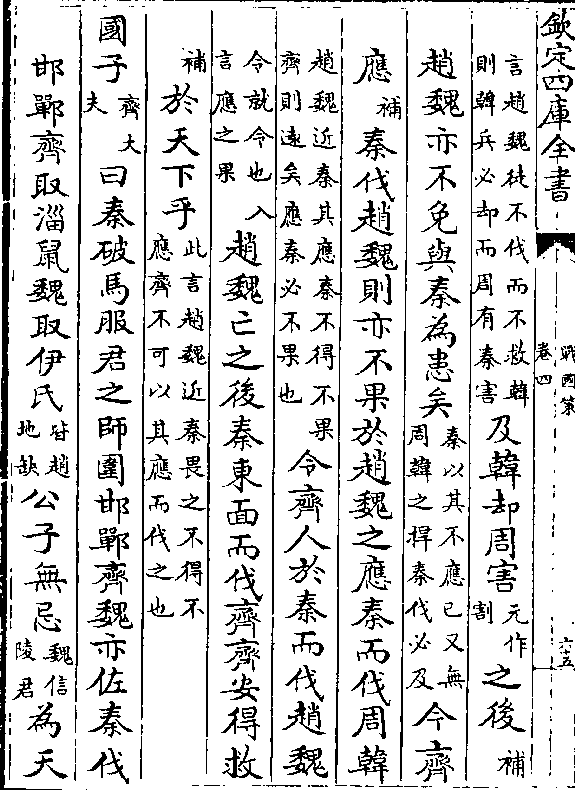 欽定四庫全書
戰國策
卷四
六五
言趙魏徒不伐而不救韓
則韓兵必却而周有秦害
及韓却周害
元作
割
之後
補
趙魏亦不免與秦為患矣
秦以其不應己又無
周韓之捍秦伐必及
今齊
應
補
秦伐趙魏則亦不果於趙魏之應秦而伐周韓
趙魏近秦其應秦不得不果
齊則遠矣應秦必不果也
令齊入於秦而伐趙魏
令就令也入
言應之果
趙魏亡之後秦東面而伐齊齊安得救
補
於天下乎
此言趙魏近秦畏之不得不
應齊不可以其應而伐之也
國子
齊大
夫
曰秦破馬服君之師圍邯鄲齊魏亦佐秦伐
邯鄲齊取淄鼠魏取伊氏
皆趙
地缺
公子無忌
魏信
陵君
為天